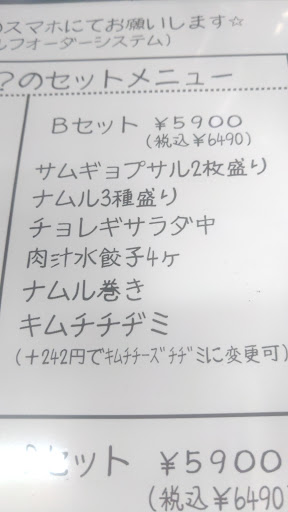 のスマホにてお願いします☆
ルフオーダーシステム)
?のセットメニュー
Bセット ¥5900
(税込¥6490)
サムギョプサル2枚盛り
ナムル3種盛り
チョレギサラダ中
肉汁水餃子4ヶ
ナムル巻き
キムチチヂミ
(+242円でキムチチーズチヂミに変更可)
セット ¥5900
(税込¥6490)